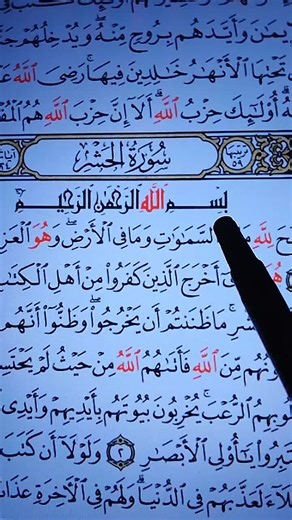 يمَـٰنَ وَأَيَّدَهُم بِرُوحٍ مِّنْهُ ۖ وَيُدْخِلُهُمْ جَ
تَحْتِهَا ٱلْأَنْهَـٰرُ خَـٰلِدِينَ فِيهَا ۚ رَضِىَ ٱللَّهُ عَ
أُو۟لَـٰٓئِكَ حِزْبُ ٱللَّهِ ۚ أَلَآ إِنَّ حِزْبَ ٱللَّهِ هُمُ ٱلْمُفْ
سُورَةُ الحَشْرِ
بِسْمِ اللَّهِ الرَّحْمَٰنِ الرَّحِيمِ
حَ لِلَّهِ ٱلسَّمَـٰوَٰتِ وَمَا فِى ٱلْأَرْضِ ۖ وَهُوَ ٱلْعَزِ
أَخْرَجَ ٱلَّذِينَ كَفَرُوا۟ مِنْ أَهْلِ ٱلْكِتَـٰبِ
شْرِ ۚ مَا ظَنَنتُمْ أَن يَخْرُجُوا۟ ۖ وَظَنُّوٓا۟ أَنَّهُم
ونُهُم مِّنَ ٱللَّهِ فَأَتَىٰهُمُ ٱللَّهُ مِنْ حَيْثُ لَمْ يَحْتَسِ
لُوبِهِمُ ٱلرُّعْبَ ۚ يُخْرِبُونَ بُيُوتَهُم بِأَيْدِيهِمْ وَأَيْدِى
تَبِرُوا۟ يَـٰٓأُو۟لِى ٱلْأَبْصَـٰرِ ٢ وَلَوْلَآ أَن كَتَبَ
لَآءَ لَعَذَّبَهُمْ فِى ٱلدُّنْيَا ۖ وَلَهُمْ فِى ٱلْـَٔاخِرَةِ عَذَابُ